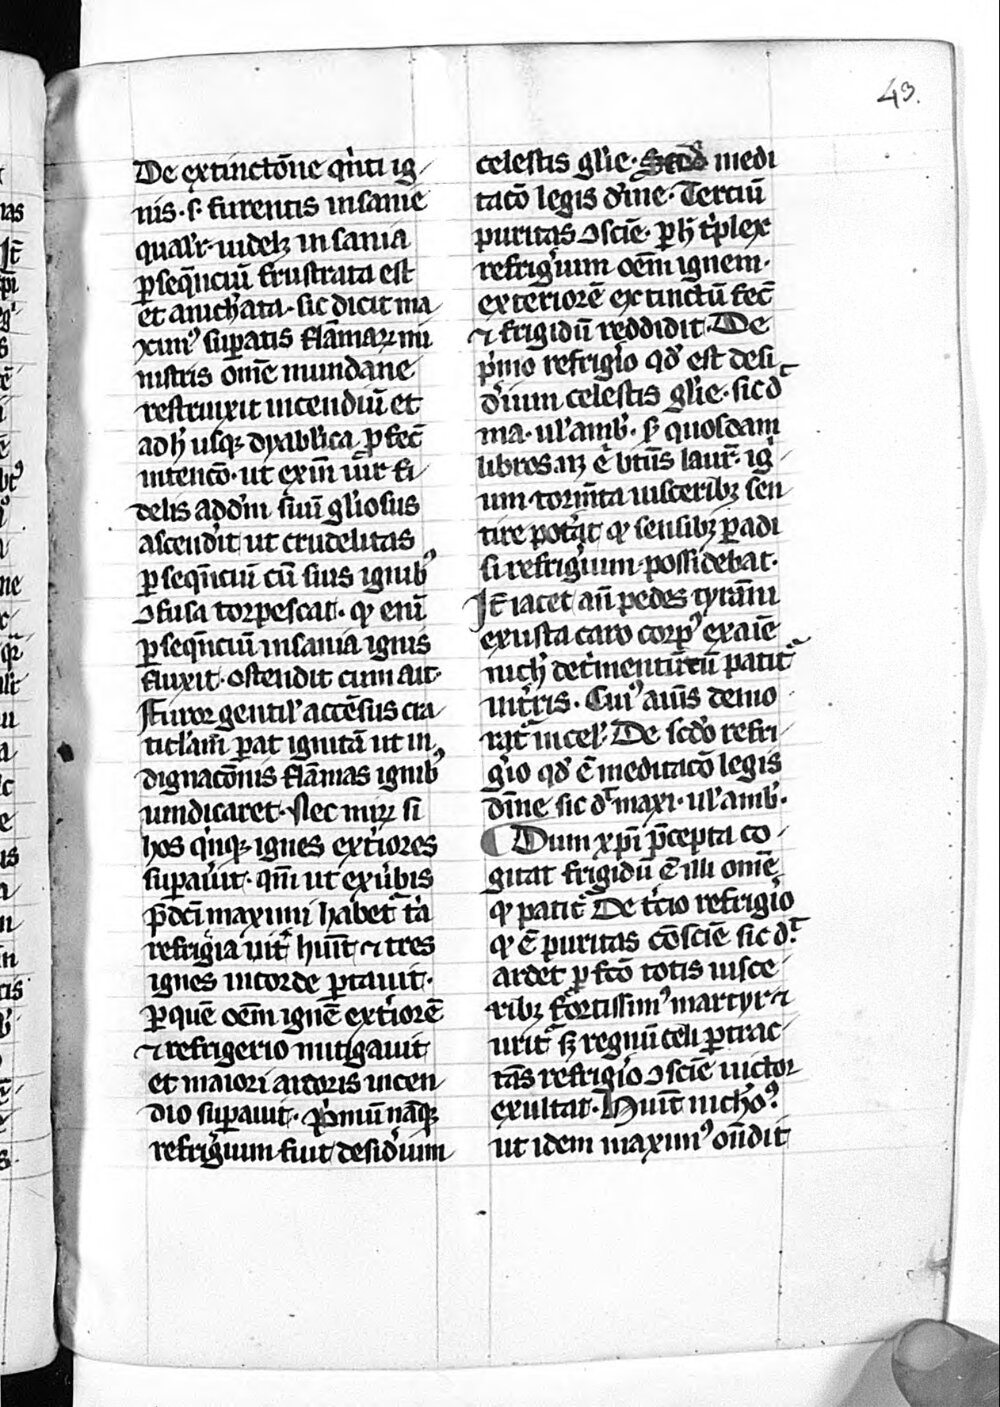 43.
De extinctōne qͥnti ig-
nis · s· furentis insanie
qualr̄· videlꝫ insania
ꝑseq̄nciū frustrata est
et anichͥata · sic dicit ma-
ximꝰ suꝑatis flāmaꝝ mi
nistris om̄e mundane
restrinxit incendiū et
adhͨ usqꝫ dyablica ꝓfec̄
intencō· ut exīn vir fi-
delis ad dn̄i suū gliosus
ascenderit ut crudelitas
ꝑseq̄nciū cū suis ignibꝰ
ↄfusa torpescat · qͦ enī
ꝑseq̄nciū insania ignis
fluxit · ostendit cum ait·
Furor gentil' accēsus cra
ticl'am̄ ꝑat ignitā ut in
dignacōnis flāmas ignibꝰ
vindicaret · Nec miꝝ si
hos qͥnqꝫ ignes extͥores
suꝑavit · qm̄ ut ex ūbis
p̄dcī maximi habet t̄ͥa
refrigͥa uit' huīt ⁊ tres
ignes in corde ꝑtavit·
ꝑ quē oēm ignē extͥorē
⁊ refrigerio mitigavit
et maiori ardoris incen
dio suꝑavit · Pͥmū nāqꝫ
refrigͥium fuit desidͥium
celestis glie · Scdō medi
tacō legis dīne · Terciū
puritas ↄscīe · ꝑ hͨ tͥplex
refrigͥium oēm ignem·
exteriorē extinctū fec̄
⁊ frigidū reddidit · De
pͥmo refrigͥo qd̄ est desi
dͥium celestis glie · sic dͨ
ma· ul' amb̄· ꝑ quosdam
libros· aꝝ ē btūs laur̄· ig-
nium tormn̄ta visceribꝫ sen
tire potͥat qͥ sensibꝫ paradi
si refrigͥium possidebat·
Jt̄ iacet an̄ pedes tyrāni
exusta caro corpꝰ exaīe
nichͥ detͥmentū tū patit'
in terris · Cuiꝰ aīus demo-
rat' in cel' De scdō refri-
gͥio qd̄ ē meditacō legis
dīne sic dͨ maxi· ul' amb̄·
Dum xp̄i p̄cepta co-
gitat frigidū ē illi om̄e
qͦ patit' De t̄cio refrigͥo
qͦ ē puritas cōscīe sic dͨ·
ardet ꝓfcō totis visce
ribꝫ fortissimꝰ martyr ⁊
urit' sꝫ regnū celi ꝑtrac-
tās refrigͥo ↄscīe victor
exultat · Huīt nichoꝰ?
ut idem maximꝰ on̄dit